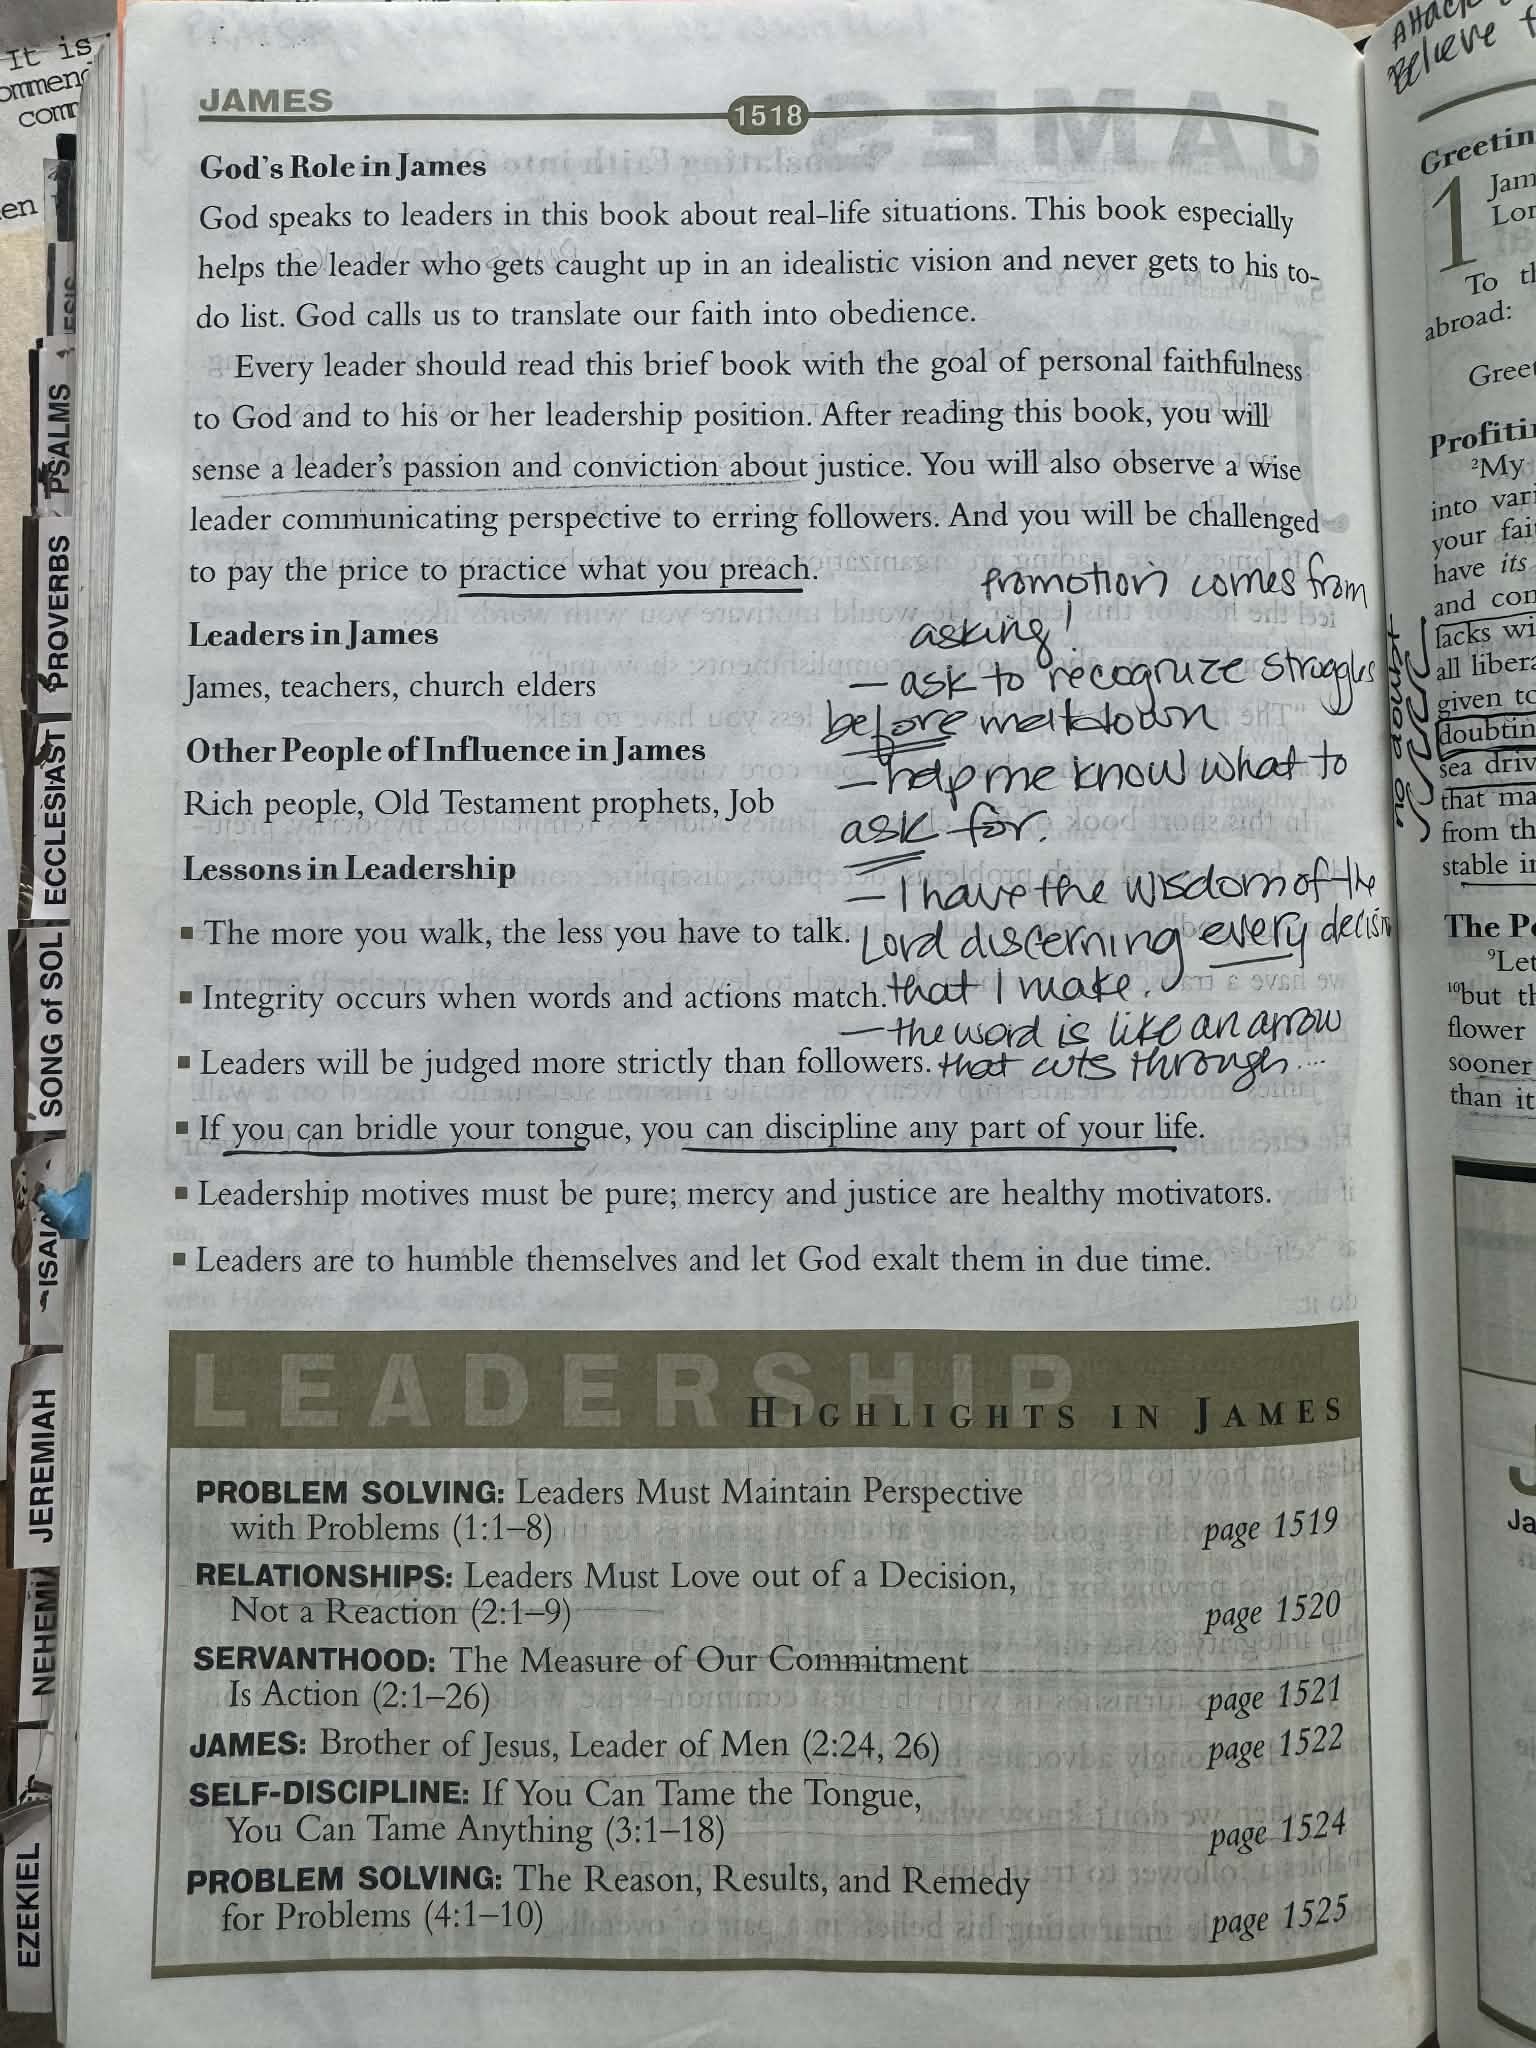 It is
comm
en
PSALMS
PROVERBS
ECCLESIAST
SONG of SOL
ISAIA
JEREMIAH
NEHEMI
EZEKIEL
JAMES
1518
God's Role in James
God speaks to leaders in this book about real-life situations. This book especially
helps the leader who gets caught up in an idealistic vision and never gets to his to-
do list. God calls us to translate our faith into obedience.
Every leader should read this brief book with the goal of personal faithfulness
to God and to his or her leadership position. After reading this book, you will
sense a leader's passion and conviction about justice. You will also observe a wise
leader communicating perspective to erring followers. And you will be challenged
to pay the price to practice what you preach.
Leaders in James
James, teachers, church elders
Other People of Influence in James
Rich people, Old Testament prophets, Job
Lessons in Leadership
▪ The more you walk, the less you have to talk.
▪ Integrity occurs when words and actions match.
▪ Leaders will be judged more strictly than followers.
▪ If you can bridle your tongue, you can discipline any part of your life.
▪ Leadership motives must be pure; mercy and justice are healthy motivators.
▪ Leaders are to humble themselves and let God exalt them in due time.
promotion comes from
asking!
— ask to recognize struggles
before meltdown
— help me know what to
ask for.
— I have the wisdom of the
Lord discerning every decision
that I make.
— the word is like an arrow
that cuts through...
LEADERSHIP
HIGHLIGHTS IN JAMES
PROBLEM SOLVING: Leaders Must Maintain Perspective
with Problems (1:1–8) page 1519
RELATIONSHIPS: Leaders Must Love out of a Decision,
Not a Reaction (2:1–9) page 1520
SERVANTHOOD: The Measure of Our Commitment
Is Action (2:1–26) page 1521
JAMES: Brother of Jesus, Leader of Men (2:24, 26) page 1522
SELF-DISCIPLINE: If You Can Tame the Tongue,
You Can Tame Anything (3:1–18) page 1524
PROBLEM SOLVING: The Reason, Results, and Remedy
for Problems (4:1–10) page 1525
Attack
Believe
no doubt
Greetin
1 Jam
Lor
To th
abroad:
Greet
Profitin
2My
into vari
your fait
have its
and con
lacks wi
all libera
given to
doubtin
sea driv
that ma
from th
stable in
The Pe
9Let
10but th
flower
sooner
than it
Ja